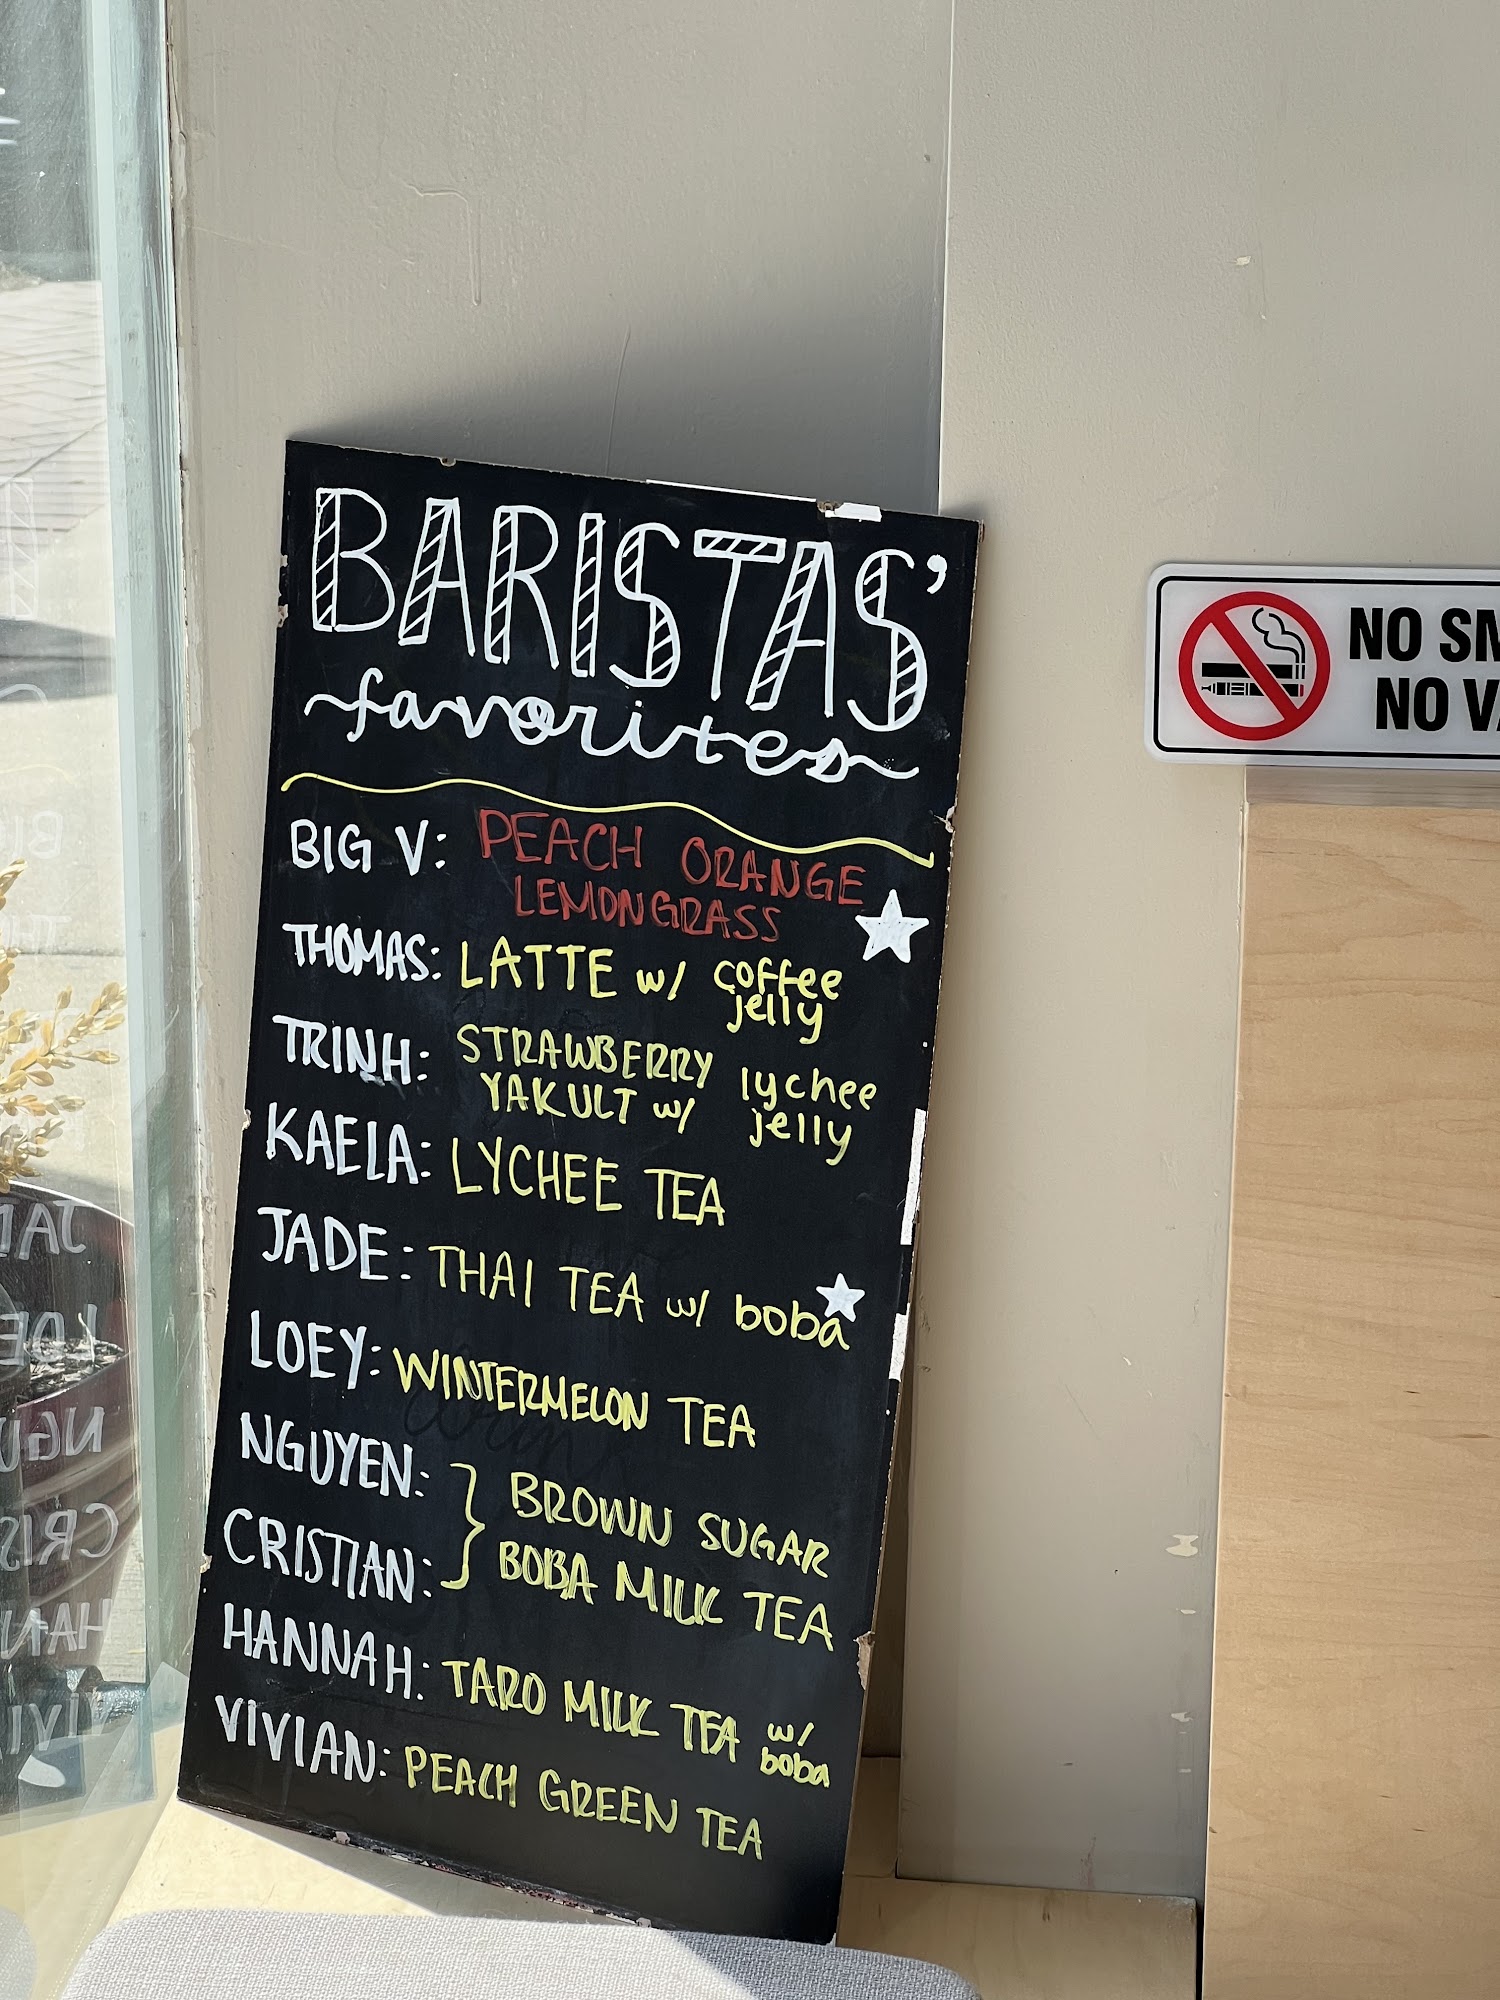 BARISTAS'
favorites
BIG V: PEACH ORANGE
LEMONGRASS
THOMAS: LATTE w/ coffee
jelly
TRINH: STRAWBERRY lychee
YAKULT w/ jelly
KAELA: LYCHEE TEA
JADE: THAI TEA w/ boba
LOEY: WINTERMELON TEA
NGUYEN: } BROWN SUGAR
CRISTIAN: BOBA MILK TEA
HANNAH: TARO MILK TEA w/
boba
VIVIAN: PEACH GREEN TEA
NO SM
NO VA